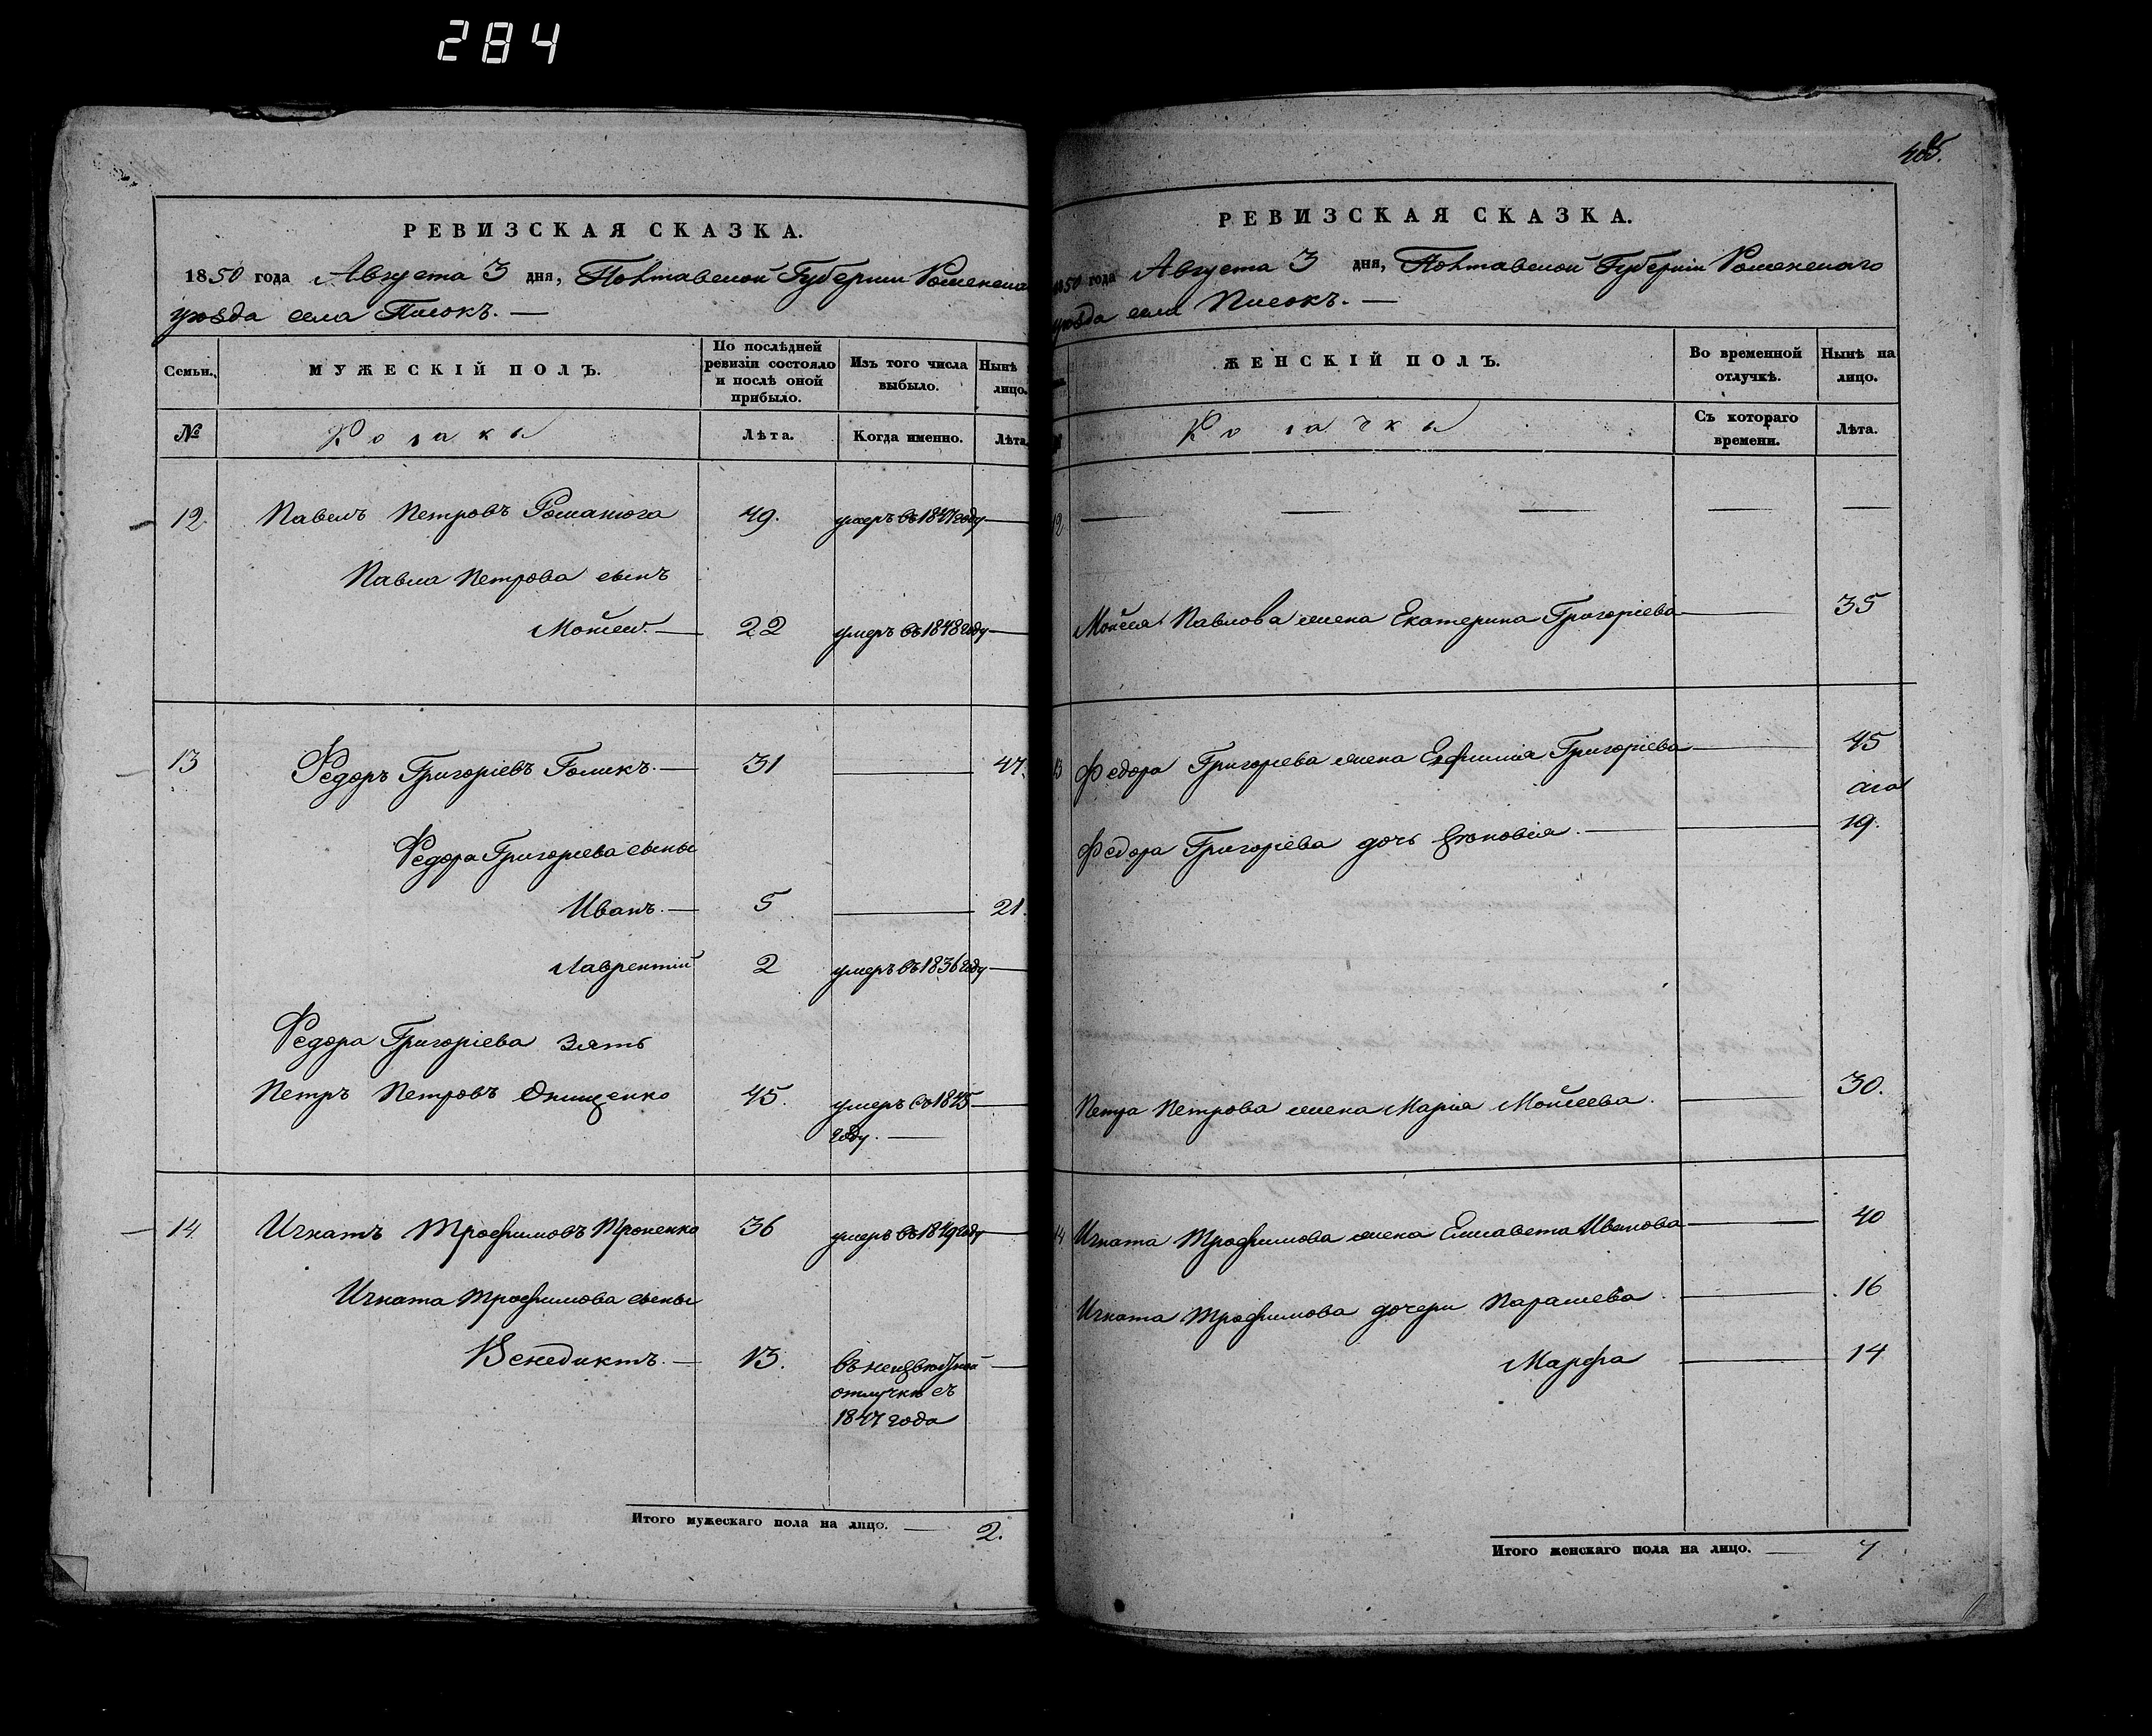 284
РЕВИЗСКАЯ СКАЗКА.
1850 года Августа 3 дня, Полтавской Губернии Роменскаго
уѣзда села Писокъ. —
Семьи. МУЖЕСКІЙ ПОЛЪ. По послѣдней ревизіи состояло и послѣ оной прибыло. Изъ того числа выбыло. Нынѣ лицо.
№ Козаки Лѣта. Когда именно. Лѣта.
12. Павелъ Петровъ Романюга 49. умеръ въ 1847 году —
Павла Петрова сынъ
Мойсей. — 22 умеръ въ 1848 году —
13 Федоръ Григоріевъ Гомикъ. — 31 — 47.
Федора Григоріева сыны
Иванъ. — 5 — 21.
Лаврентій 2 умеръ въ 1836 году —
Федора Григоріева зять
Петръ Петровъ Онищенко 45. умеръ въ 1845 —
году. —
14. Игнатъ Трофимовъ Троненко 36 умеръ въ 1849 году —
Игната Трофимова сыны
Венедиктъ. — 13. въ неизвѣстной —
отлучкѣ съ
1847 года
Итого мужескаго пола на лицо. — 2.
485.
РЕВИЗСКАЯ СКАЗКА.
1850 года Августа 3 дня, Полтавской Губерніи Роменскаго
уѣзда села Писокъ. —
ЖЕНСКІЙ ПОЛЪ. Во временной отлучкѣ. Нынѣ на лицо.
№ Козачки Съ котораго времени. Лѣта.
12 — — — — —
Мойсея Павлова жена Екатерина Григоріева — 35
13 Федора Григоріева жена Евфимія Григоріева — 45
Федора Григоріева дочь Зѣновія. — — 19.
Петра Петрова жена Марія Мойсеева. — 30.
14 Игната Трофимова жена Елисавета Иванова — 40
Игната Трофимова дочери Парасева. — 16
Марфа — 14
Итого женскаго пола на лицо. — 7